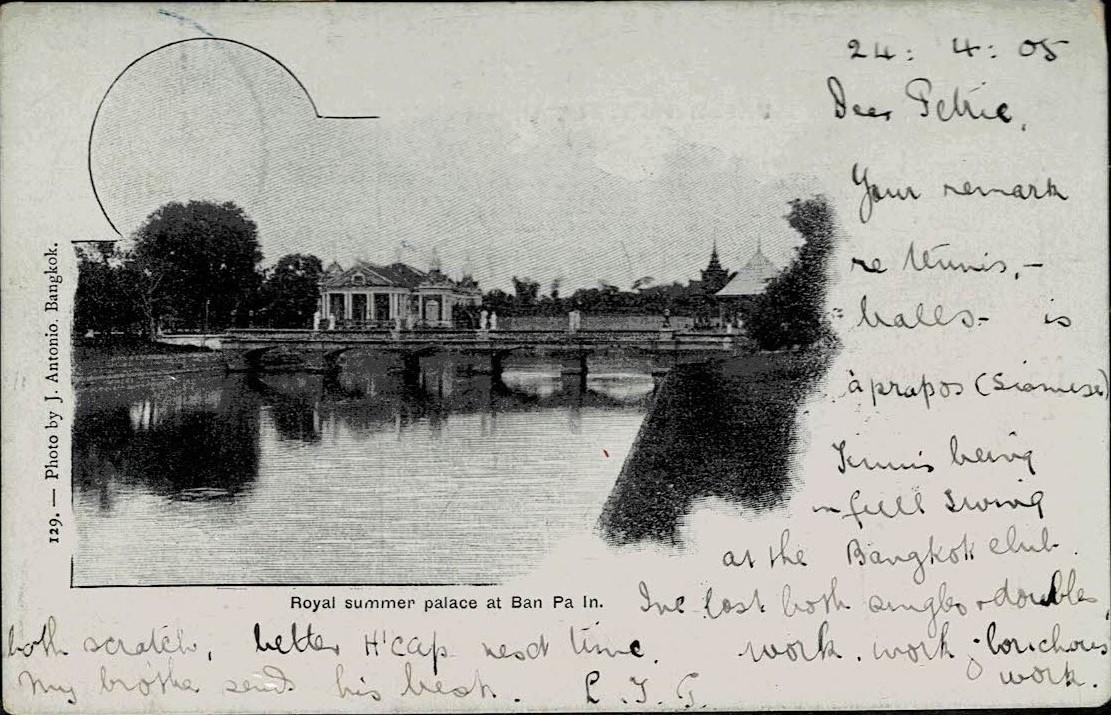 24: 4: 05
Dear Petrie,
Your remark
re tennis,-
- balls - is
àprapos (Siamese)
Tennis being
in full swing
at the Bangkok club.
I've lost both singles + doubles,
both scratch, better H'cap next time. work. work
My brother sends his best. work.
129. — Photo by J. Antonio. Bangkok.
Royal summer palace at Ban Pa In.